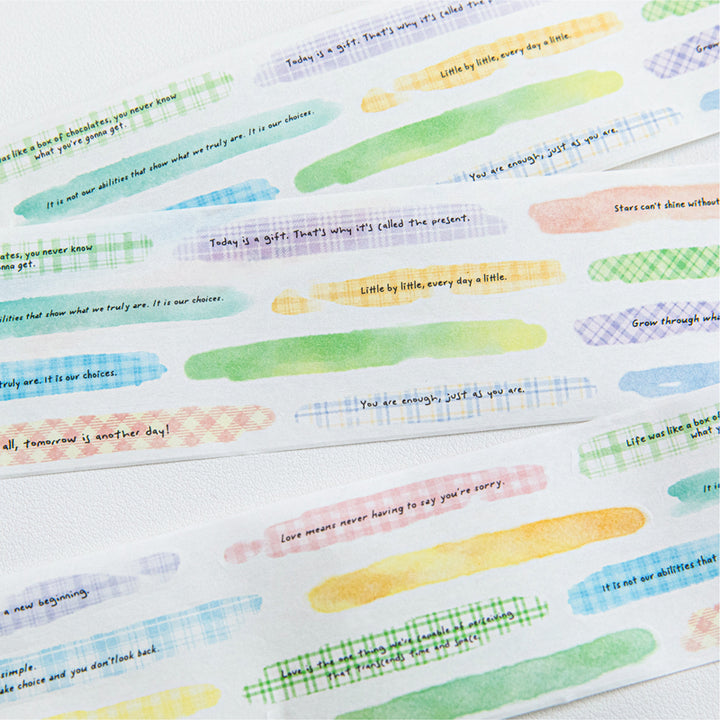 Today is a gift. That's why it's called the
Little by little, every day a little.
was like a box of chocolates, you never know
what you're gonna get.
Grow
It is not our abilities that show what we truly are. It is our choices.
You are enough, just as you are.
Today is a gift. That's why it's called the present.
Stars can't shine without
lates, you never know
nna get.
Little by little, every day a little.
bilities that show what we truly are. It is our choices.
Grow through wha
truly are. It is our choices.
You are enough, just as you are.
all, tomorrow is another day!
Life was like a box of
what y
Love means never having to say you're sorry.
It is
a new beginning.
It is not our abilities that
simple.
ake choice and you don'tlook back.
Love is the one thing we're capable of perceiving
that transcends time and space.